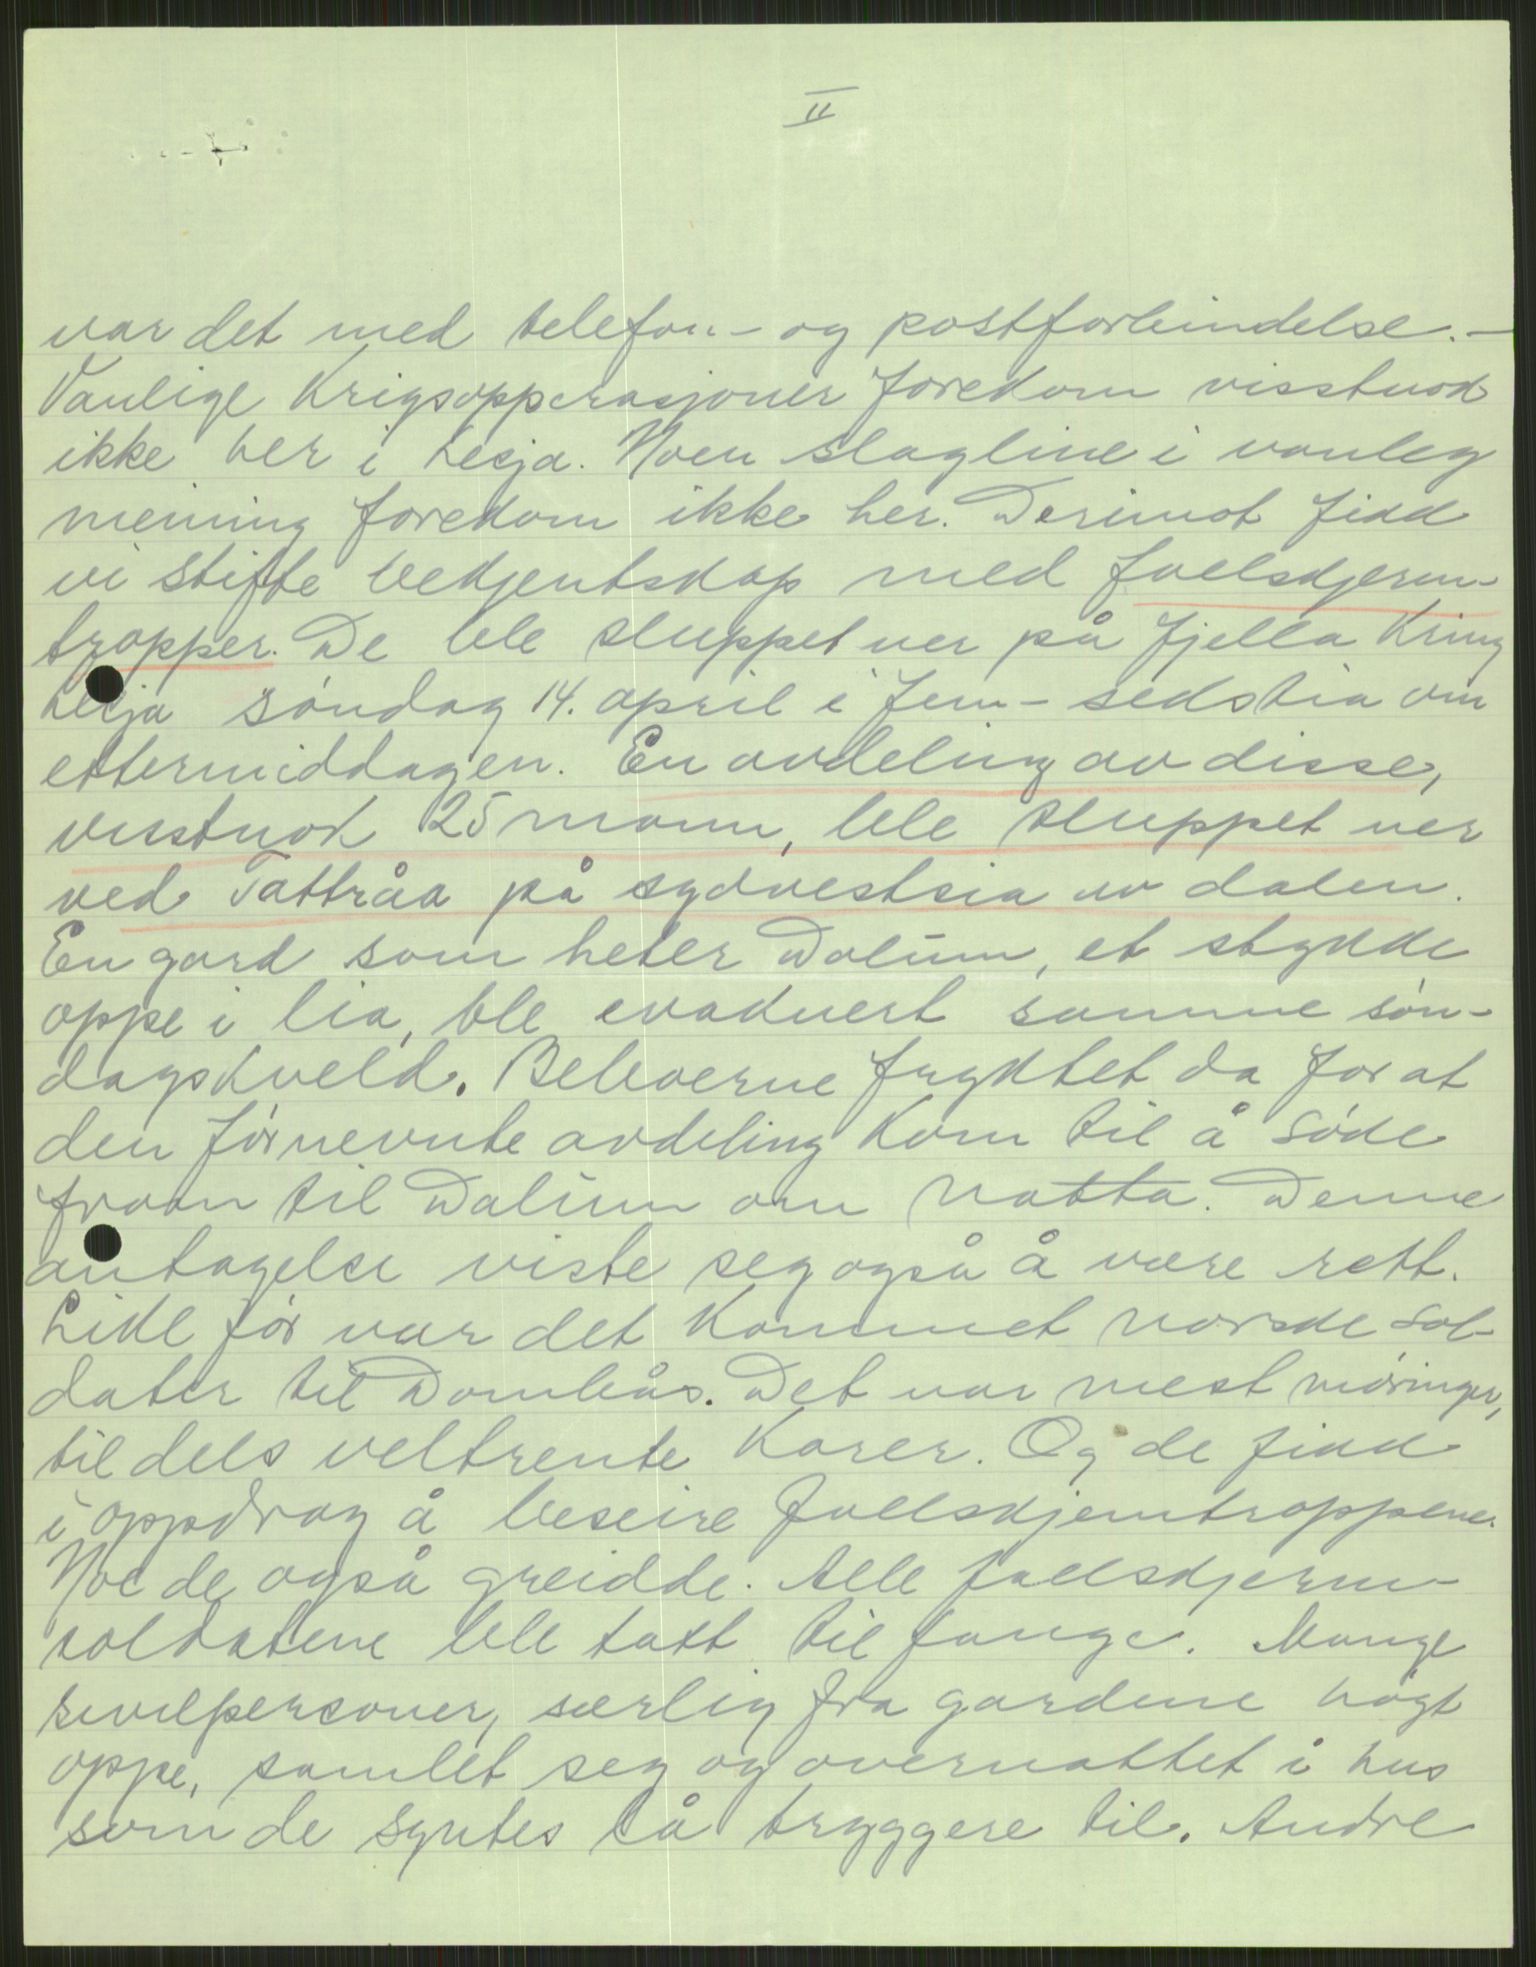 II
var det med telefon- og postforbindelse. -
Vanlige krigsopperasjoner forekom visstnok
ikke her i Lesja. Noen slagline i vanleg
meining forekom ikke her. Derimot fikk
vi stifte bekjentskap med fallskjerm-
tropper. De ble sluppet ner på fjella kring
Lesja søndag 14. april i fem-sekstia om
ettermiddagen. En avdeling av disse,
visstnok 25 mann, ble sluppet ner
ved Tattråa på sydvestsia av dalen.
En gard som heter Dalum, et stykke
oppe i lia, ble evakuert samme søn-
dagskveld. Beboerne fryktet da for at
den førnevnte avdeling kom til å søke
fraan til Dalum om natta. Denne
antagelse viste seg også å være rett.
Like før var det kommet norske sol-
dater til Dombås. Det var mest møringer,
til dels veltrente karer. Og de fikk
i oppdrag å beseire fallskjemtroppene.
Noe de også greidde. Alle fallskjerm-
soldatene ble tatt til fange. Mange
sivilpersoner, særlig fra gardene høgt
oppe, samlet seg og overnattet i hus
som de syntes lå tryggere til. Andre